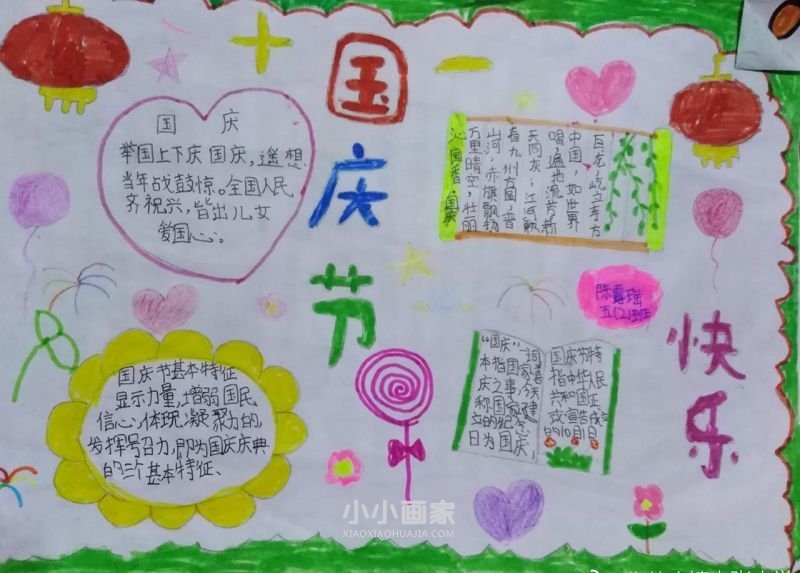 十一
国
庆
节
快
乐
国 庆
举国上下庆国庆,遥想
当年战鼓惊。全国人民
齐祝兴,皆出儿女
爱国心。
巨龙,屹立东方
中国,如世界
唱遍地流芳新
天同庆,江河歌
看九州方圆,普
山河,赤旗飘扬
万里晴空,壮丽
沁园春·国庆
陈露瑶
五(2)班
国庆节基本特征
显示力量,增弱国民
信心,体现凝聚力的,
发挥号召力,即为国庆庆典
的三个基本特征、
"国庆"
本指国家
庆之事
称国
立的纪
日为国庆,
国庆节特
指中华人民
共和国正
式宣告成立
的10月1日
小小画家
XIAOXIAOHUAJIA.COM